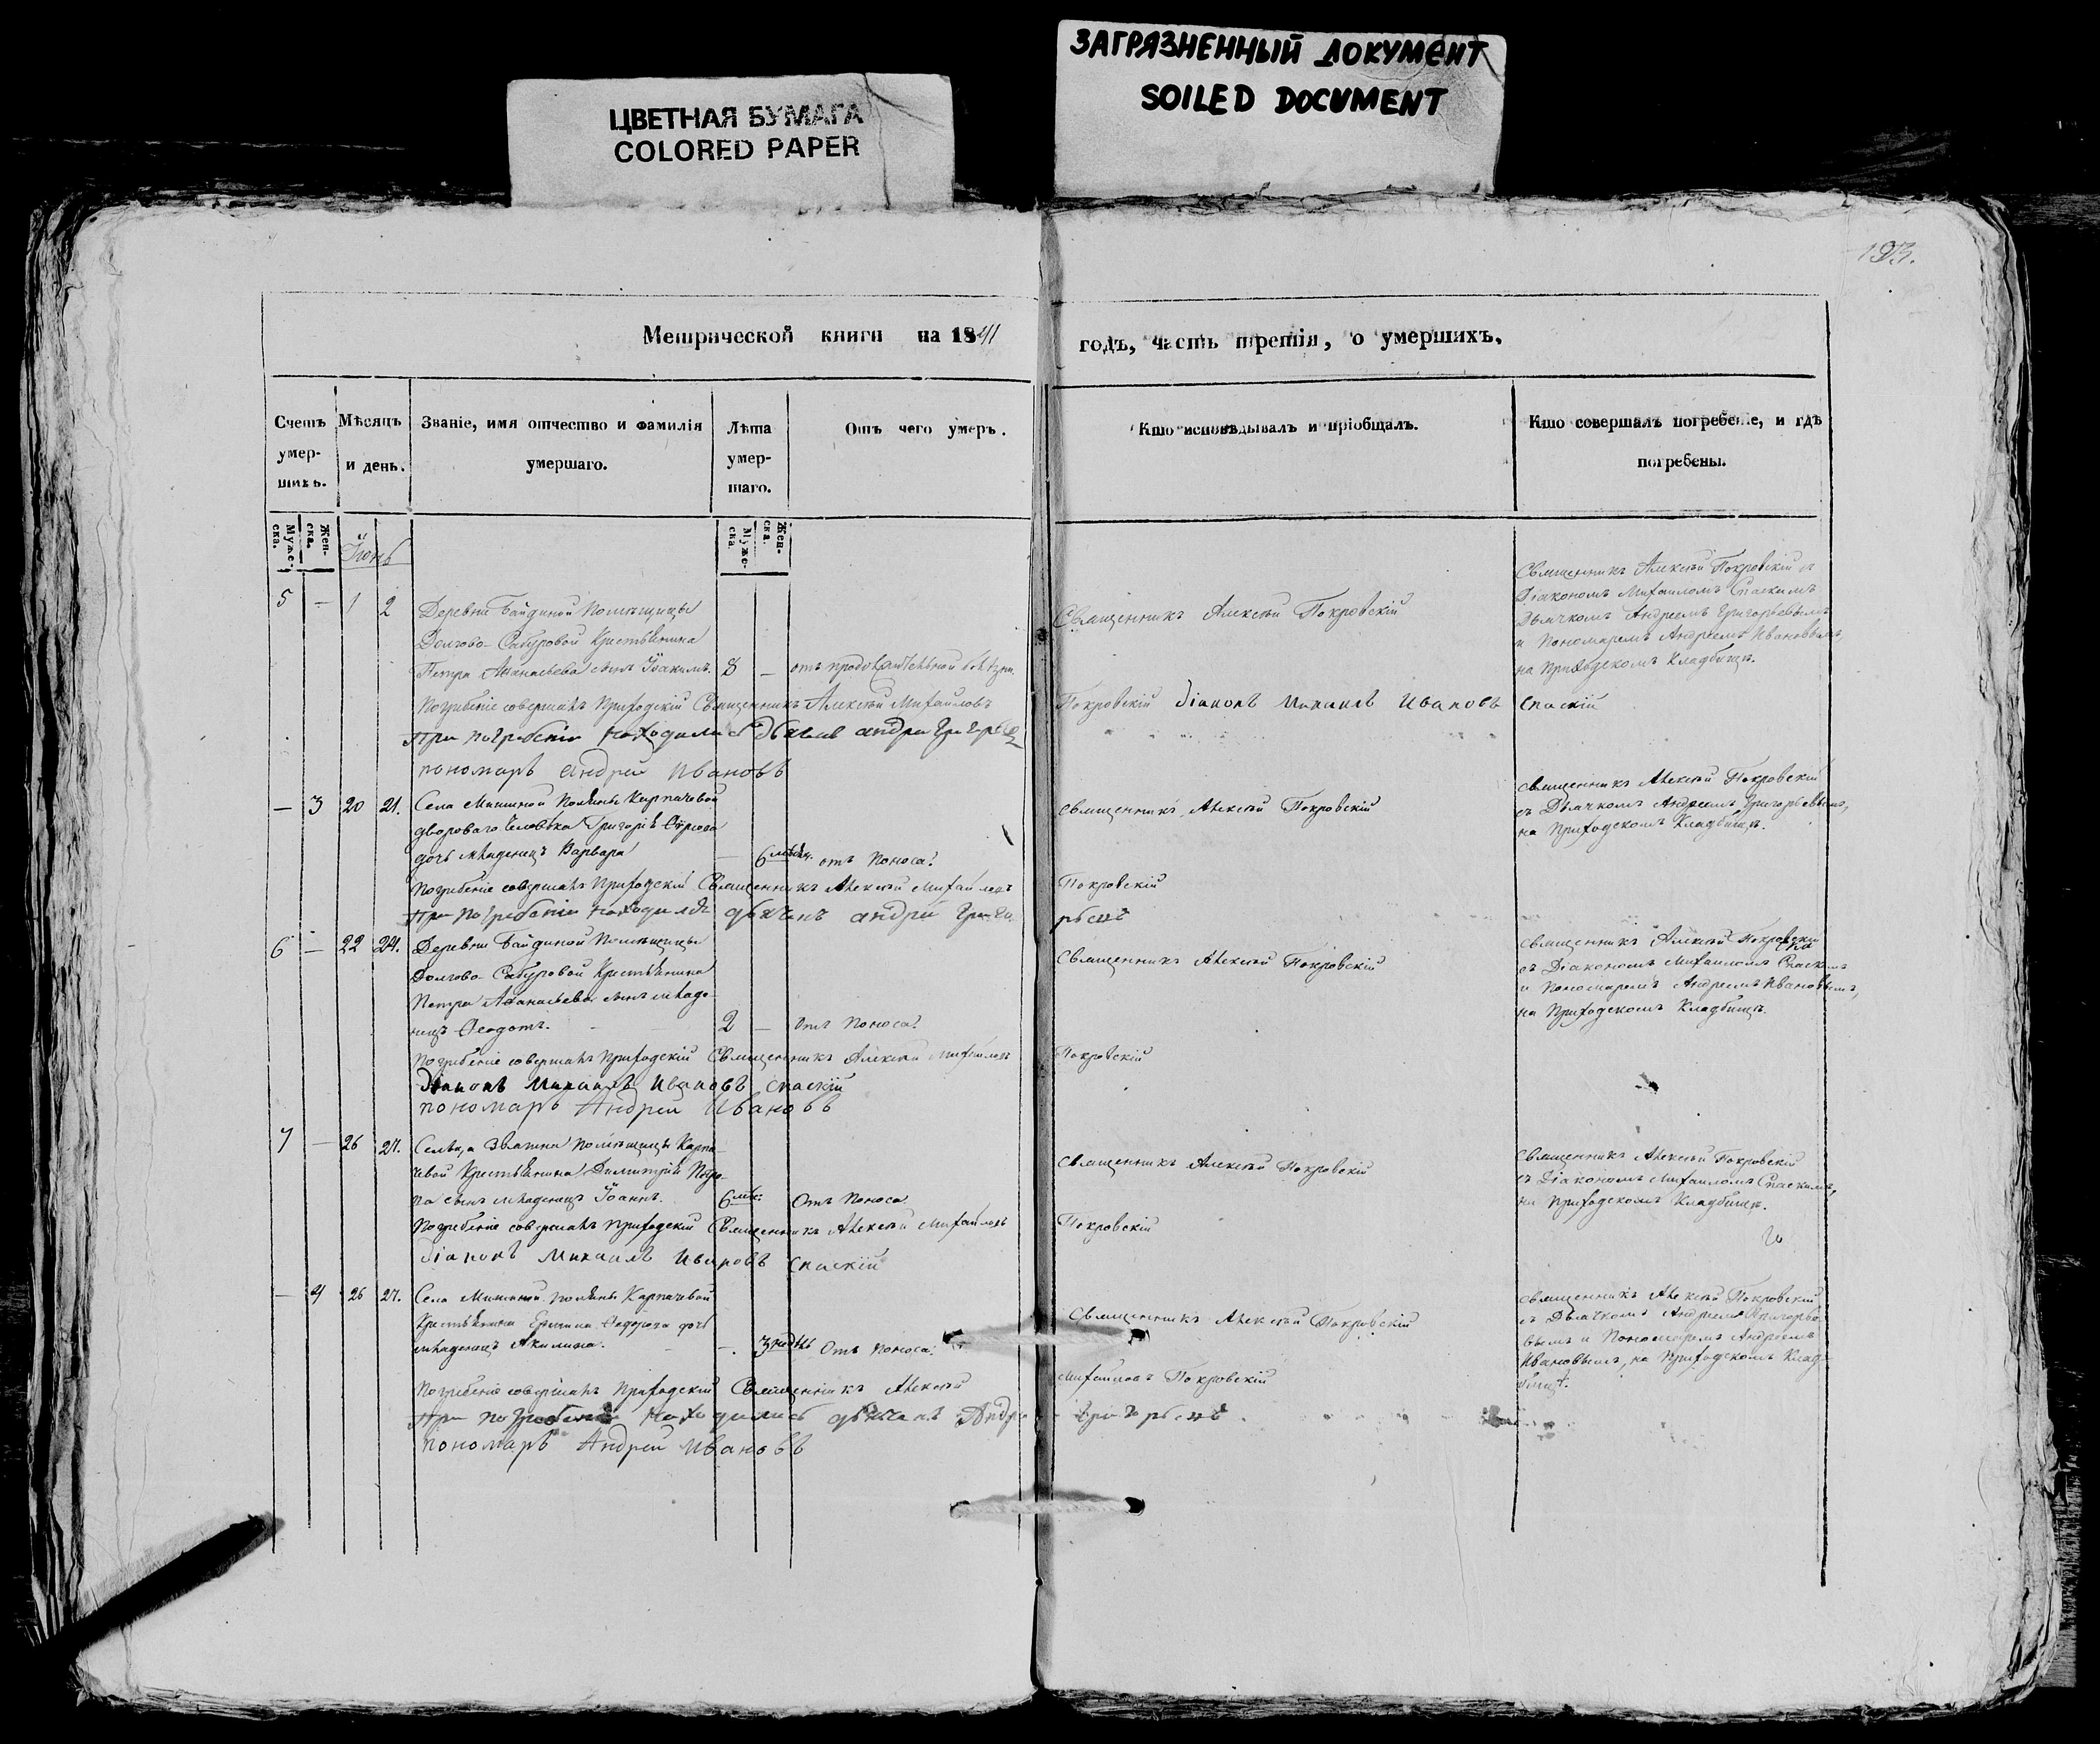 ЗАГРЯЗНЕННЫЙ ДОКУМЕНТ
SOILED DOCUMENT
ЦВЕТНАЯ БУМАГА
COLORED PAPER
193.
Метрической книги на 1841
годъ, часть третія, о умершихъ.
Счетъ умер-шихъ.
Мѣсяцъ и день.
Званіе, имя отчество и фамилія умершаго.
Лѣта умер-шаго.
Отъ чего умеръ.
Кто исповѣдывалъ и пріобщалъ.
Кто совершалъ погребеніе, и гдѣ погребены.
Муже-ска.
Жен-ска.
Муже-ска.
Жен-ска.
Іюнь
5 — 1 2 Деревни Байдиной Помѣщицы
Долгово-Сабуровой Крестьянина
Петра Аѳанасьева сынъ Іоакимъ. 8 — отъ продолжительной болѣзни.
Священникъ Алексѣй Покровскій
Священникъ Алексѣй Покровскій съ
Діакономъ Михаиломъ Спаскимъ
Дьячкомъ Андреемъ Григорьевымъ
и Пономаремъ Андреемъ Ивановымъ,
на Приходскомъ Кладбищѣ.
Погребеніе совершалъ Приходскій Священникъ Алексѣй Михайловъ Покровскій Діаконъ Михаилъ Ивановъ Спаскій
При погребеніи находились дьячекъ андрей Григорьевъ
пономарь андрей Ивановъ
— 3 20 21. Села Мишиной Поляны Карпачевой
двороваго человѣка Григорія
дочь младенецъ Варвара — 6 мѣсяц. отъ Поноса.
Священникъ Алексѣй Покровскій
Священникъ Алексѣй Покровскій
съ Дьячкомъ Андреемъ Григорьевымъ,
на Приходскомъ Кладбищѣ.
Погребеніе совершалъ Приходскій Священникъ Алексѣй Михайловъ Покровскій
При погребеніи находился дьячекъ андрей Григорьевъ
6 — 22 24. Деревни Байдиной Помѣщицы
Долгово-Сабуровой Крестьянина
Петра Аѳанасьева сынъ младе-
нецъ Ѳеодотъ. 2 — отъ Поноса.
Священникъ Алексѣй Покровскій
Священникъ Алексѣй Покровскій
съ Діакономъ Михаиломъ Спаскимъ
и Пономаремъ Андреемъ Ивановымъ,
на Приходскомъ Кладбищѣ.
Погребеніе совершалъ Приходскій Священникъ Алексѣй Михайловъ Покровскій
Діаконъ Михаилъ Ивановъ Спаскій
пономарь Андрей Ивановъ
7 — 26 27. Сельца Помѣщицы Карпа-
чевой Крестьянина Димитрія
сынъ младенецъ Іоаннъ. 6 мѣс: Отъ Поноса
Священникъ Алексѣй Покровскій
Священникъ Алексѣй Покровскій
съ Діакономъ Михаиломъ Спаскимъ,
на Приходскомъ Кладбищѣ.
Погребеніе совершалъ Приходскій Священникъ Алексѣй Михайловъ Покровскій
Діаконъ Михаилъ Ивановъ Спаскій
— 4 26 27. Села Мишиной поляны Карпачевой
Крестьянина Ѳедорова дочь
младенецъ Акилина. —. 3 недѣль Отъ поноса.
Священникъ Алексѣй Покровскій
Священникъ Алексѣй Покровскій
съ Дьячкомъ Андреемъ Григорье-
вымъ и Пономаремъ Андреемъ
Ивановымъ, на Приходскомъ Клад-
бищѣ.
Погребеніе совершалъ Приходскій Священникъ Алексѣй Михайловъ Покровскій
При погребеніи находились дьячекъ Андрей Григорьевъ
пономарь Андрей Ивановъ